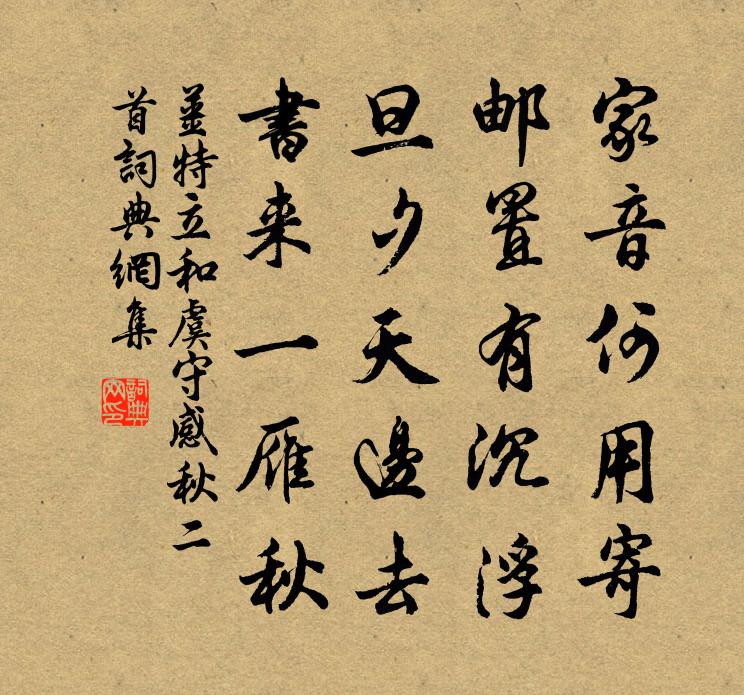 家音何用寄
邮置有沉浮
旦夕天邊去
書来一雁秋
姜特立和虞守感秋二
首詞典網集
詞典網印